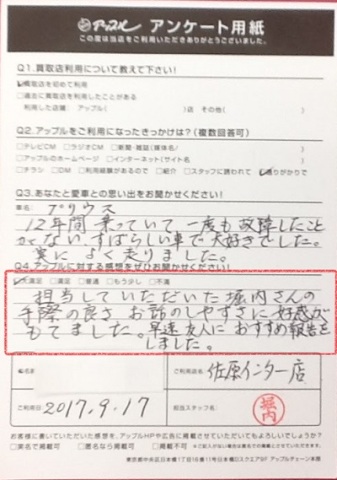 アップル アンケート用紙
この度は当店をご利用いただきありがとうございました。
Q1.買取店利用について教えて下さい!
買取店を初めて利用
□過去に買取店を利用したことがある
利用した店舗： アップル( )店 その他( )
Q2.アップルをご利用になったきっかけは?(複数回答可)
□テレビCM □ラジオCM □新聞・雑誌(媒体名/ )
□アップルのホームページ □インターネット(サイト名 )
□チラシ □DM □利用経験があるので □紹介 □スタッフに誘われて 通りがかりで
Q3.あなたと愛車との思い出をお聞かせください!
車名： プリウス
12年間乗っていて一度も故障したこと
がない、すばらしい車で大好きでした。
実によく走りました。
Q4.アップルに対する感想をぜひお聞かせください!
大満足 □満足 □普通 □もう少し □不満
担当していただいた堀内さんの
手際の良さ、お話のしやすさに好感が
もてました。早速友人におすすめ報告を
しました。
ご利用店名： 佐原インター店
ご利用日 2017.9.17
担当スタッフ名： 堀内
お客様に書いていただいた感想を、アップルHPや広告に掲載させていただいてもよろしいでしょうか?
□実名で掲載可 □匿名なら掲載可 □掲載不可
東京都中央区日本橋1丁目16番11号日本橋Dスクエア5F アップルチェーン本部